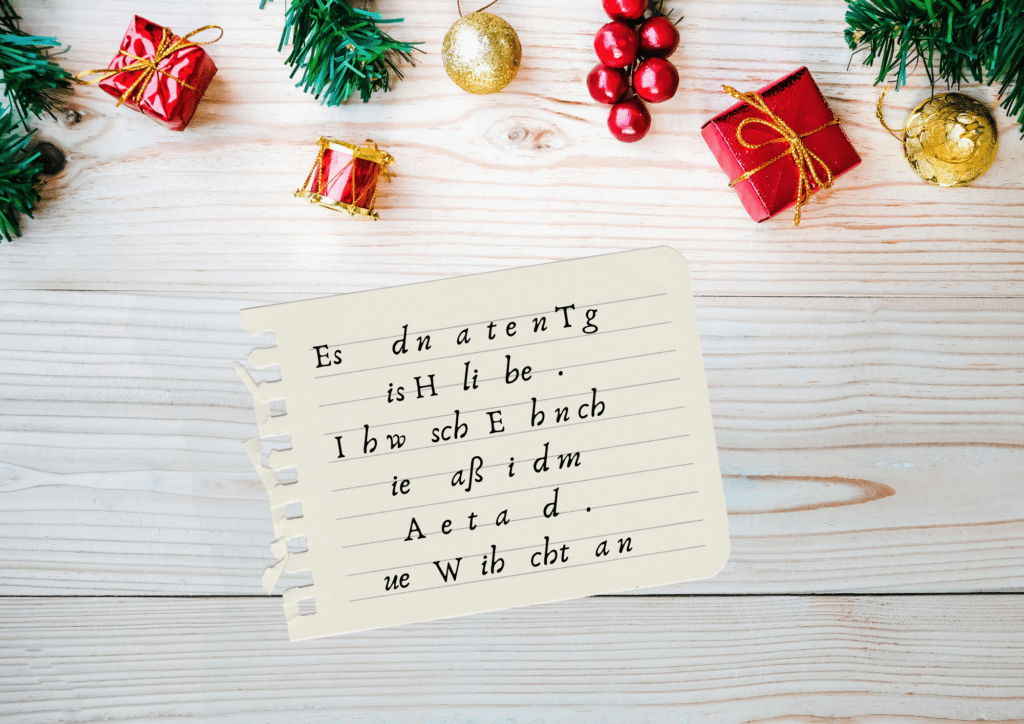 Es dn a t e n T g
is H li be .
I h w sch E h n ch
ie aß i d m
A e t a d .
ue W ih cht an